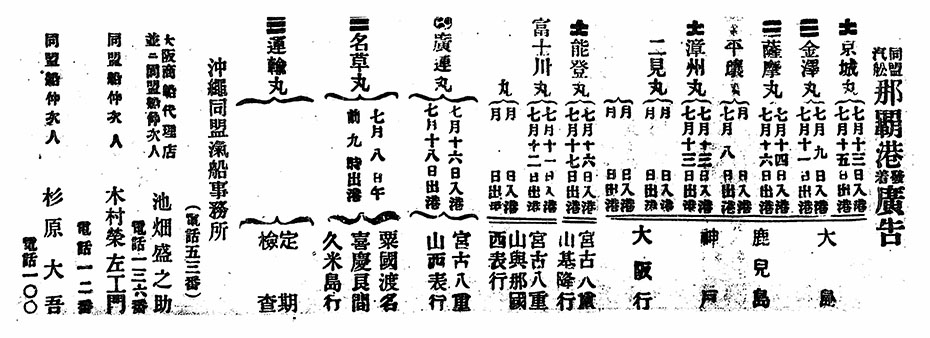 同盟汽船那覇港發着廣告
京城丸 七月十三日入港 七月十五日出港
金澤丸 七月九日入港 七月十一日出港
薩摩丸 七月十四日入港 七月十六日出港
平壤丸 月 日入港 七月八日出港
漳州丸 七月十二日入港 七月十三日出港
二見丸 月 日入港 月 日出港
月 日入港 月 日出港
大島
鹿兒島
神戸
大阪行
能登丸 七月十六日入港 七月十七日出港
宮古八重山基隆行
富士川丸 七月十一日入港 七月十二日出港
丸 月 日入港 月 日出港
宮古八重山與那國西表行
廣運丸 七月十六日入港 七月十八日出港
宮古八重山西表行
名草丸 七月八日午前九時出港
粟國渡名喜慶良間久米島行
運輸丸
定期檢査
沖繩同盟滊船事務所
（電話五三番）
大阪商船代理店
並ニ同盟船仲次人 池畑盛之助
電話一三六番
同盟船仲次人 木村榮左工門
電話一二番
同盟船仲次人 杉原大吾
電話一〇〇